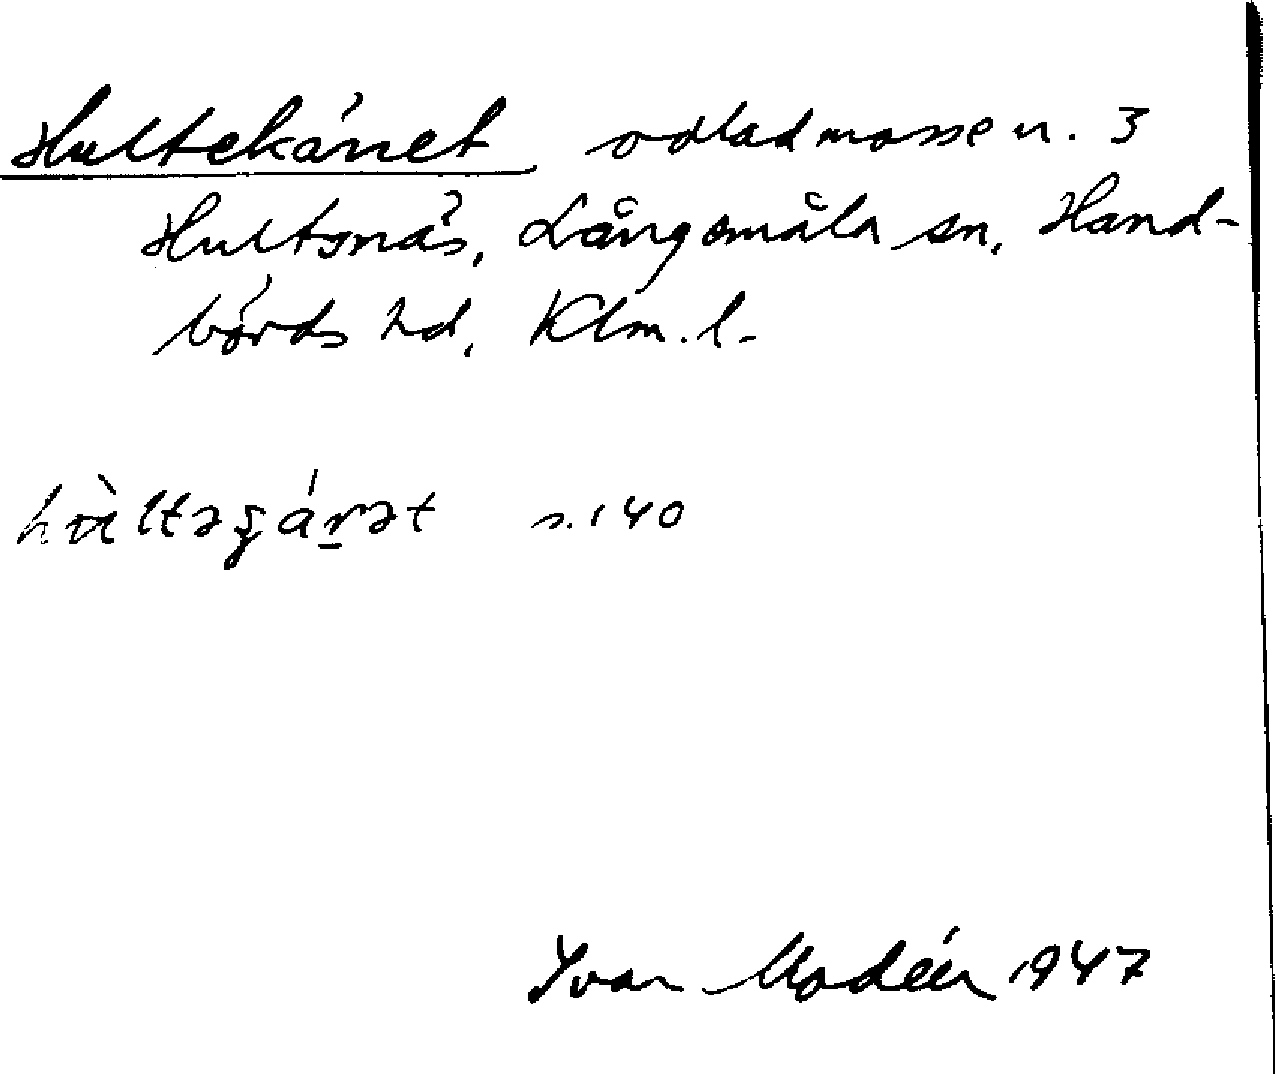 Hultekärret odlad mosse u. 3
Hultsnäs, Långemåla sn, Hand-
börds hd, Klm. l.
s. 140
Yvar Modéer 1947